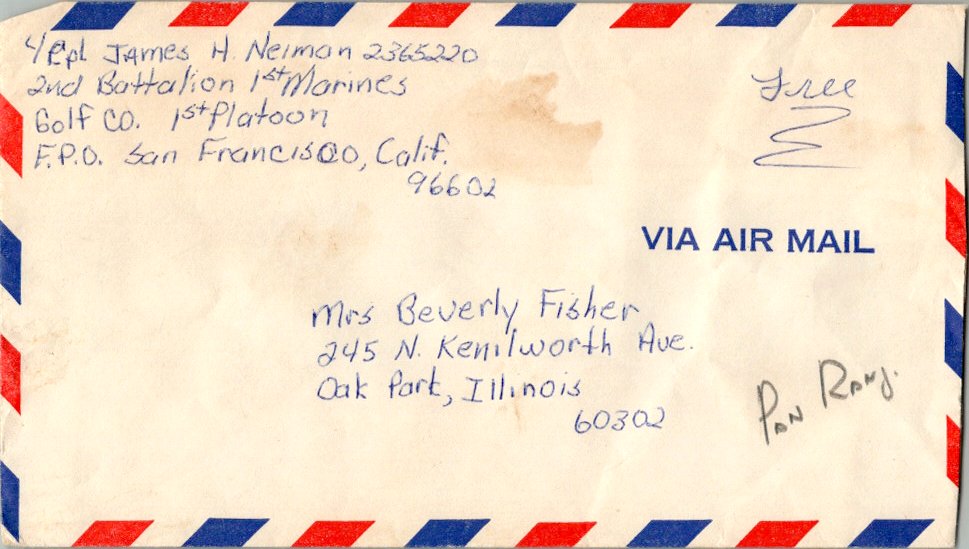 L/Cpl James H. Neiman 2365220
2nd Battalion 1st Marines
Golf CO. 1st Platoon
F.P.O. San Francisco, Calif.
96602
Free
VIA AIR MAIL
Mrs Beverly Fisher
245 N. Kenilworth Ave.
Oak Park, Illinois
60302
Pan Rang.